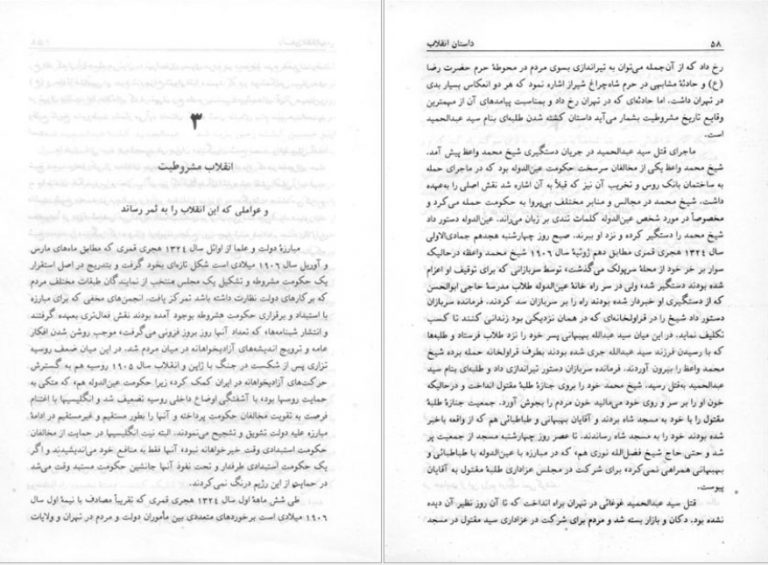 ۳
انقلاب مشروطیت
و عواملی که این انقلاب را به ثمر رساند
مبارزهٔ دولت و علما از اوائل سال ۱۳۲۴ هجری قمری که مطابق ماه‌های مارس
و آوریل سال ۱۹۰۶ میلادی است شکل تازه‌ای بخود گرفت و بتدریج در اصل استقرار
یک حکومت مشروطه و تشکیل یک مجلس منتخب از نمایندگان طبقات مختلف مردم
که بر کارهای دولت نظارت داشته باشد تمرکز یافت. انجمن‌های مخفی که برای مبارزه
با استبداد و برقراری حکومت مشروطه بوجود آمده بودند نقش فعال‌تری بعهده گرفتند
و انتشار شبنامه‌ها، که تعداد آنها روز بروز فزونی می‌گرفت، موجب روشن شدن افکار
عامه و ترویج اندیشه‌های آزادیخواهانه در میان مردم شد. در این میان ضعف روسیه
تزاری پس از شکست در جنگ با ژاپن و انقلاب سال ۱۹۰۵ روسیه هم به گسترش
حرکت‌های آزادیخواهانه در ایران کمک کرد، زیرا حکومت عین‌الدوله هم، که متکی به
حمایت روسها بود، با آشفتگی اوضاع داخلی روسیه تضعیف شد و انگلیسیها با اغتنام
فرصت به تقویت مخالفان حکومت پرداخته و آنها را بطور مستقیم و غیرمستقیم در ادامهٔ
مبارزه علیه دولت تشویق و تشجیع می‌نمودند. البته نیت انگلیسیها در حمایت از مخالفان
حکومت استبدادی وقت خیرخواهانه نبوده آنها فقط به منافع خود می‌اندیشیدند و اگر
یک حکومت استبدادی طرفدار و تحت نفوذ آنها جانشین حکومت مستبد وقت می‌شد
در حمایت از این رژیم درنگ نمی‌کردند.
طی شش ماههٔ اول سال ۱۳۲۴ هجری قمری که تقریباً مصادف با نیمهٔ اول سال
۱۹۰۶ میلادی است برخوردهای متعددی بین مأموران دولت و مردم در تهران و ولایات
۵۸ داستان انقلاب
رخ داد که از آن‌جمله می‌توان به تیراندازی بسوی مردم در محوطهٔ حرم حضرت رضا
(ع) و حادثهٔ مشابهی در حرم شاه‌چراغ شیراز اشاره نمود که هر دو انعکاس بسیار بدی
در تهران داشت. اما حادثه‌ای که در تهران رخ داد و بمناسبت پیامدهای آن از مهمترین
وقایع تاریخ مشروطیت بشمار می‌آید داستان کشته شدن طلبه‌ای بنام سید عبدالحمید
است.
ماجرای قتل سید عبدالحمید در جریان دستگیری شیخ محمد واعظ پیش آمد.
شیخ محمد واعظ یکی از مخالفان سرسخت حکومت عین‌الدوله بود که در ماجرای حمله
به ساختمان بانک روس و تخریب آن نیز که قبلاً به آن اشاره شد نقش اصلی را بعهده
داشت. شیخ محمد در مجالس و منابر مختلف بی‌پروا به حکومت حمله می‌کرد و
مخصوصاً در مورد شخص عین‌الدوله کلمات تندی بر زبان می‌راند. عین‌الدوله دستور داد
شیخ محمد را دستگیر کرده و نزد او ببرند. صبح روز چهارشنبه هجدهم جمادی‌الاولی
سال ۱۳۲۴ هجری قمری مطابق دهم ژوئیهٔ سال ۱۹۰۶ شیخ محمد واعظ، درحالیکه
سوار بر خر خود از محلهٔ سرپولک می‌گذشت، توسط سربازانی که برای توقیف او اعزام
شده بودند دستگیر شد، ولی در سر راه خانهٔ عین‌الدوله طلاب مدرسهٔ حاجی ابوالحسن
که از دستگیری او خبردار شده بودند راه را بر سربازان سد کردند. فرمانده سربازان
دستور داد شیخ را در قراولخانه‌ای که در همان نزدیکی بود زندانی کنند تا کسب
تکلیف نماید. در این میان سید عبدالله بهبهانی پسر خود را نزد طلاب فرستاد و طلبه‌ها
که با رسیدن فرزند سید عبدالله جری شده بودند بطرف قراولخانه حمله برده شیخ
محمد واعظ را بیرون آوردند. فرمانده سربازان دستور تیراندازی داد و طلبه‌ای بنام سید
عبدالحمید به‌قتل رسید. شیخ محمد خود را بروی جنازهٔ طلبهٔ مقتول انداخت و درحالیکه
خون او را بر سر و روی خود می‌مالید خون مردم را بجوش آورد. جمعیت جنازهٔ طلبهٔ
مقتول را با خود به مسجد شاه بردند و آقایان بهبهانی و طباطبائی هم که از واقعه باخبر
شده بودند خود را به مسجد شاه رساندند. تا عصر روز چهارشنبه مسجد از جمعیت پر
شد و حتی حاج شیخ فضل‌الله نوری هم، که در مبارزه با عین‌الدوله با طباطبائی و
بهبهانی همراهی نمی‌کرد، برای شرکت در مجلس عزاداری طلبهٔ مقتول به آقایان
پیوست.
قتل سید عبدالحمید غوغائی در تهران براه انداخت که تا آن روز نظیر آن دیده
نشده بود. دکان و بازار بسته شد و مردم برای شرکت در عزاداری سید مقتول در مسجد